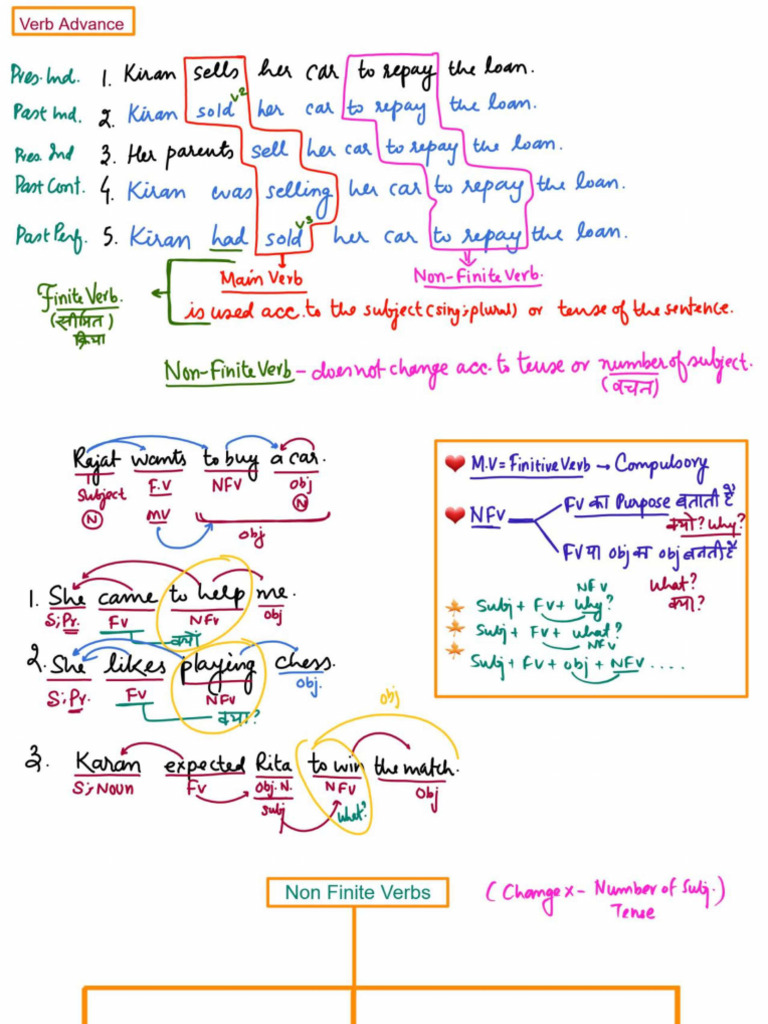 Verb Advance
Pres. Ind. 1. Kiran sells her car to repay the loan.
Past Ind. 2. Kiran sold v2 her car to repay the loan.
Pres. Ind 3. Her parents sell her car to repay the loan.
Past Cont. 4. Kiran was selling her car to repay the loan.
Past Perf. 5. Kiran had sold v3 her car to repay the loan.
Main Verb Non-Finite Verb.
Finite Verb. is used acc. to the subject (sing; plural) or tense of the sentence.
(सीमित)
क्रिया
Non-Finite Verb - does not change acc. to tense or number of subject.
(वचन)
Rajat wants to buy a car.
Subject F.V NFV obj
N mv N
obj
M.V = Finitive Verb → Compulsory
NFV FV का Purpose बताती है
क्यों? Why?
FV या obj का obj बनती है
What?
क्या?
NFV
Subj + FV + Why?
Subj + FV + what?
NFV
Subj + FV + obj + NFV ....
1. She came to help me.
S; Pr. FV NFV obj
क्यों
2. She likes playing chess.
S; Pr. FV NFV obj.
क्या?
obj
3. Karan expected Rita to win the match.
S; Noun FV Obj. N. NFV Obj
Subj What?
Non Finite Verbs
(Change x - Number of Subj.)
Tense